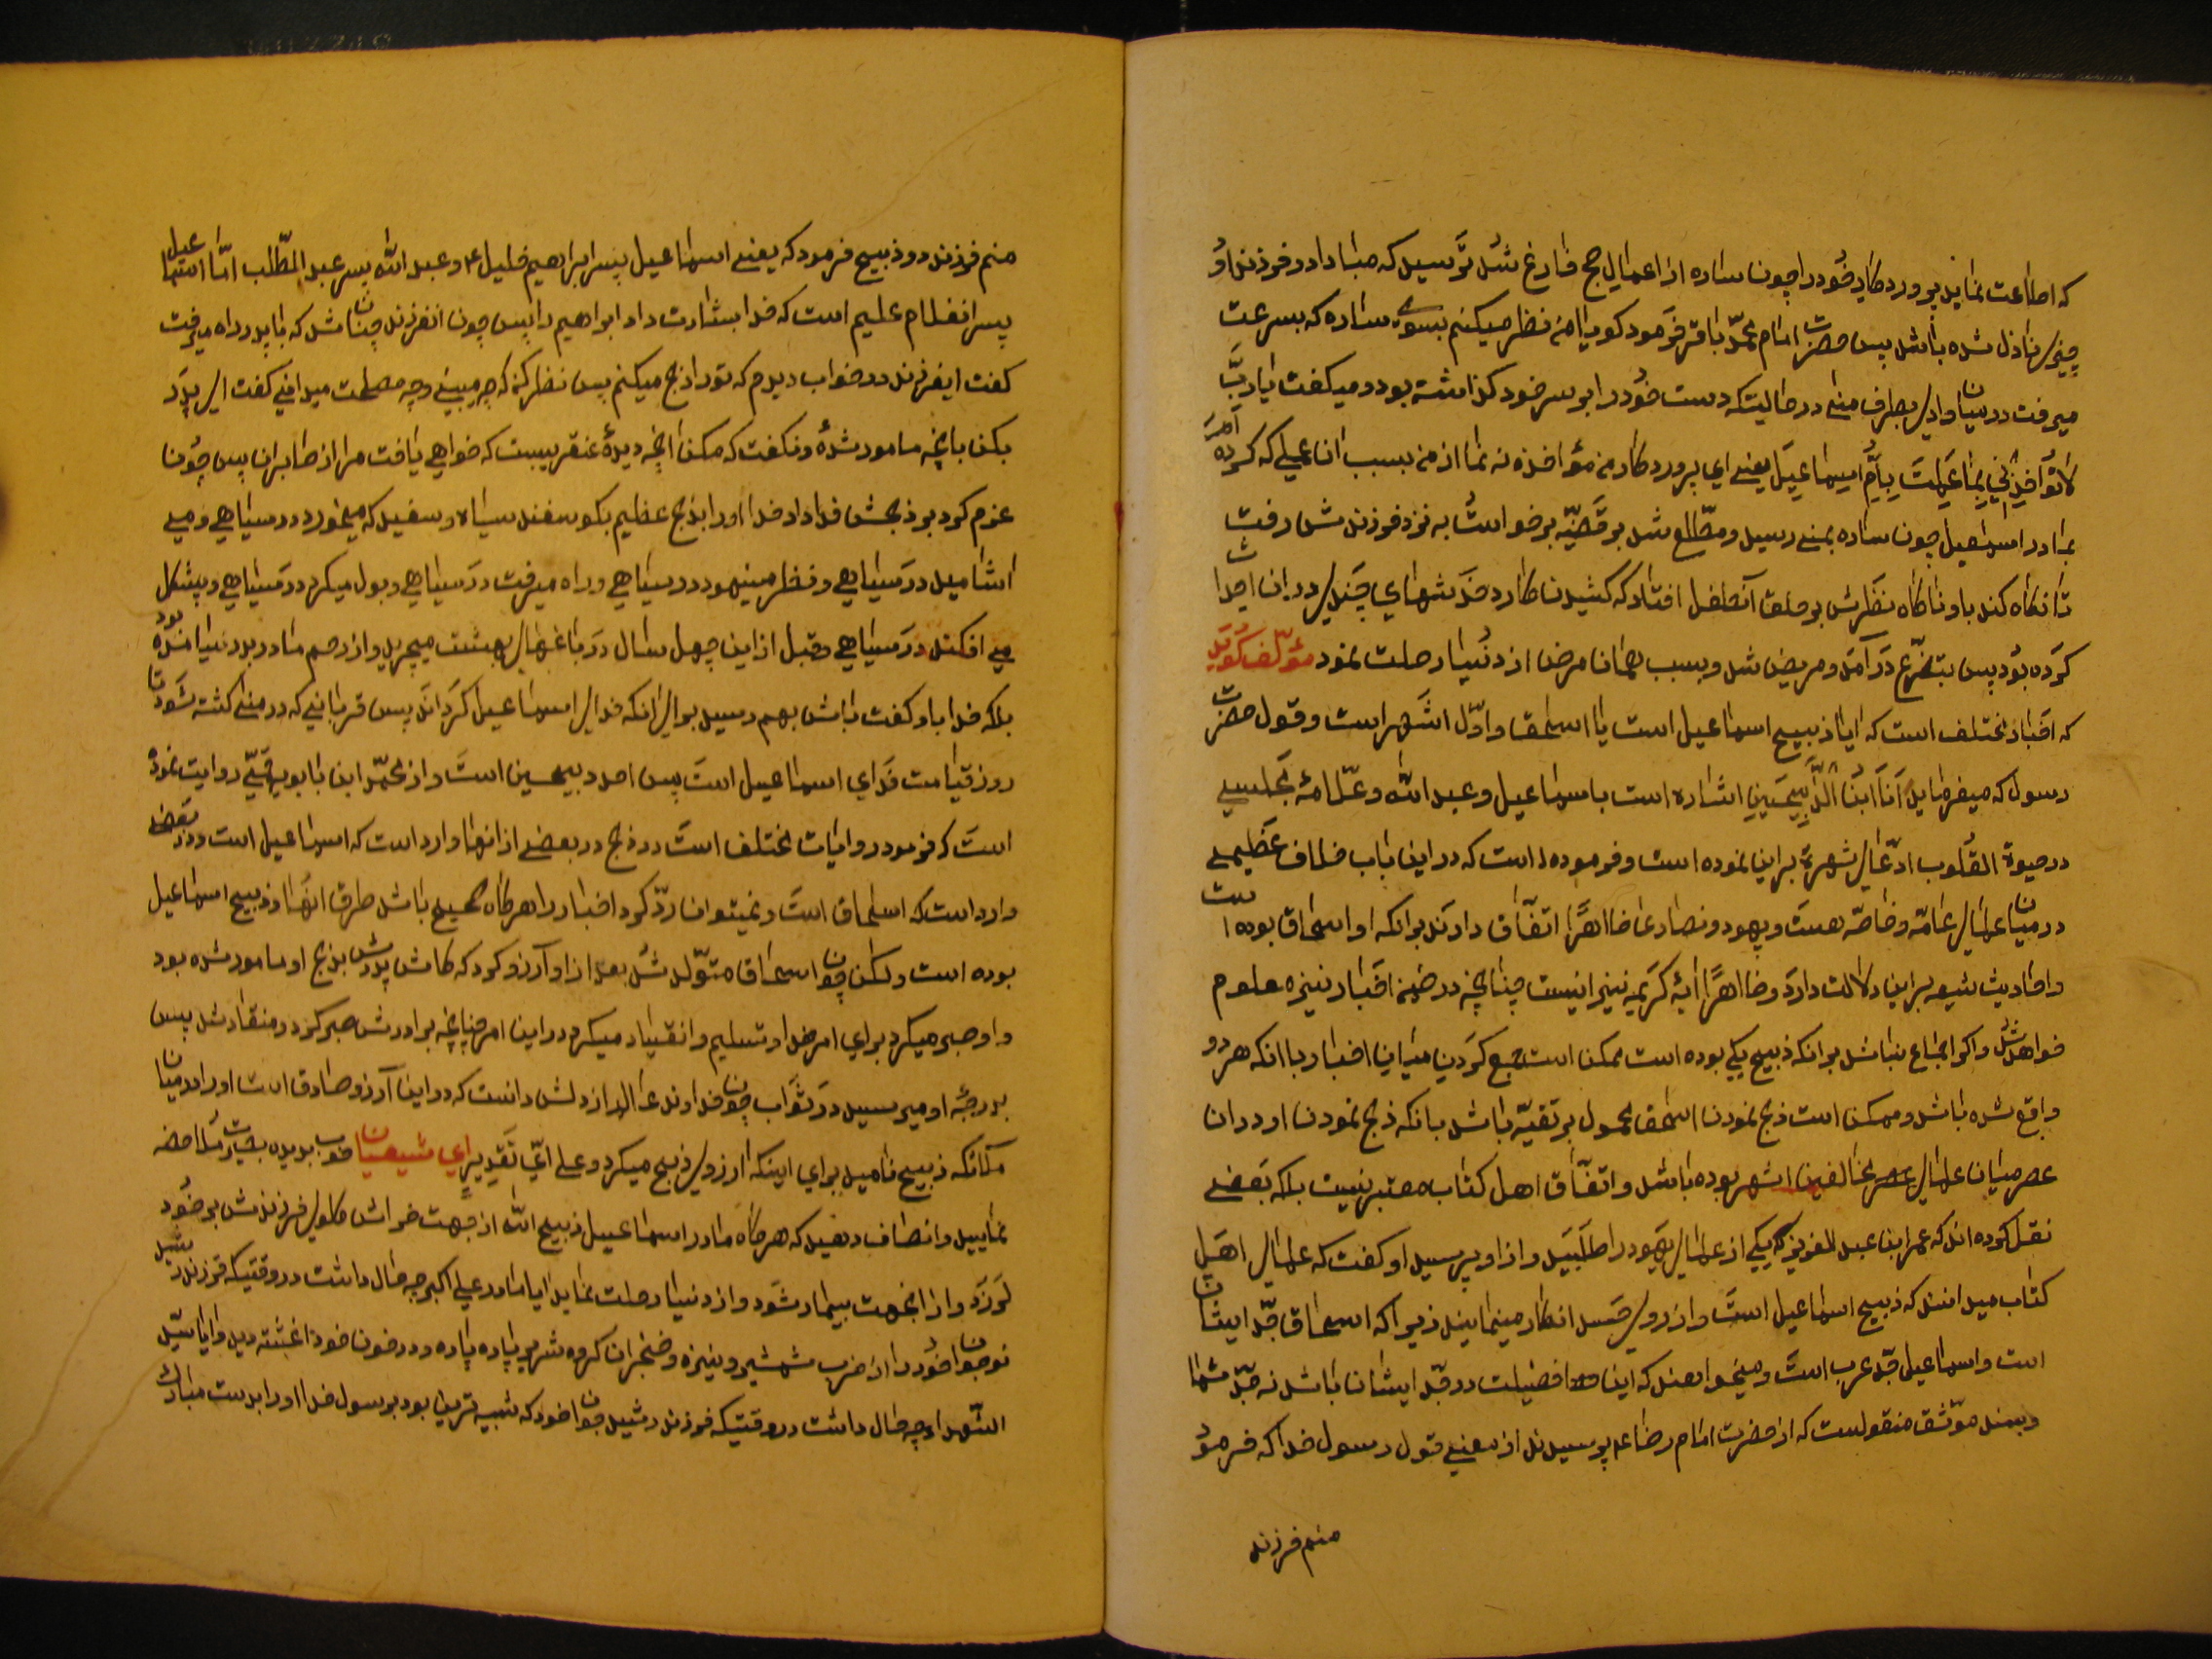 که اطاعت نماید پروردگار خود را چون ساره از اعمال حج فارغ شد ترسید که مبادا در فرزند او
چیزی نازل شده باشد پس حضرت امام محمد باقر فرمود گویا من نظر میکنم بسوی ساره که بسرعت
میرفت در میان وادی بطرف منی در حالتیکه دست خود را بر سر خود گذاشته بود و میگفت یا ربّ
لا تؤاخذنی بما عملت بامّ اسماعیل یعنی ای پروردگار من مؤاخذه نه نما از من بسبب انعملی که کرده ام
بمادر اسمعیل چون ساره بمنی رسید و مطّلع شد بر قضیّه برخواست به نزد فرزندش رفت
تا نگاه کند باو ناگاه نظرش بر حلق آنطفل افتاد که کشیدن کارد خدشهای چندی در ان احداث
کرده بود پس بتضرّع درآمد و مریض شد و بسبب همان مرض از دنیا رحلت نمود مؤلّف گوید
که اخبار مختلف است که ایا ذبیح اسماعیل است یا اسحق و اوّل اشهر است و قول حضرت
رسول که میفرماید انا ابن الذّبیحین اشاره است باسماعیل و عبد الله و علّامهٔ مجلسی
در حیوة القلوب ادّعای شهرة براین نموده است و فرموده است که در این باب خلاف عظیمی
در میان علمای عامّه و خاصّه هست و یهود و نصاری ظاهرًا اتّفاق دارند برانکه او اسحاق بوده است
و احادیث شیعه براین دلالت دارد و ظاهرًا ایهٔ کریمه نیز اینست چنانچه در ضمن اخبار نیز معلوم
خواهد شد و اگر اجماع نباشد برانکه ذبیح یکی بوده است ممکن است جمع کردن میان این اخبار با انکه هر دو
واقع شده باشد و ممکن است ذبح نمودن اسحق محمول بر تقیّه باشد بانکه ذبح نمودن او در ان
عصر میان علمای عصر مخالفین اشهر بوده باشد و اتفاق اهل کتاب معتبر نیست بلکه بعضی
نقل کرده اند که عمر ابن عبد العزیز که یکی از علمای یهود را طلبید و از او پرسید او گفت که علمای اهل
کتاب میدانند که ذبیح اسماعیل است و از روی حسد انکار مینمایند زیرا که اسحاق جدّ ایشان
است و اسماعیل جدّ عرب است و میخواهند که این فضیلت در جدّ ایشان باشد نه جدّ شما
و بسند موّثق منقولست که از حضرت امام رضا ع پرسیدند از معنی قول رسول خدا که فرمود
منم فرزند
منم فرزند دو ذبیح فرمود که یعنی اسماعیل پسر ابراهیم خلیل ع و عبد الله پسر عبد المطّلب امّا اسماعیل
پس انغلام علیم است که خدا بشارت داد ابراهیم را پس چون انفرزند چنان شد که با پدر راه میرفت
گفت ایفرزند در خواب دیدم که تو را ذبح میکنم پس نظر کن که چه میبینی و چه مصلحت میدانی گفت ای پدر
بکن بانچه مامور شدهٔ و نگفت که مکن انچه دیدهٔ عنقریبست که خواهی یافت مرا از صابران پس چون
عزم کرد بر ذبحش فدا داد خدا او را بذبح عظیم بگوسفند سیاه و سفید که میخورد در سیاهی و می
اشامید در سیاهی و نظر مینمود در سیاهی و راه میرفت در سیاهی و بول میکرد در سیاهی و پشکل
می افکند در سیاهی و قبل از این چهل سال در باغهای بهشت میچرید و از رحم مادر بدر نیامده بود
بلکه خدا باو گفت باش بهم رسید برای انکه فدای اسماعیل گرداند پس قربانی که در منی کشته شود تا
روز قیامت فدای اسماعیل است پس احد ذبیحین است و از محمّد ابن بابویه قمّی روایت نموده
است که فرمود روایات مختلف است در ذبح در بعضی از انها وارد است که اسماعیل است و در بعضی
وارد است که اسحاق است و نمیتوان ردّ کرد اخبار را هرگاه صحیح باشد طرق انها و ذبیح اسماعیل
بوده است ولکن چون اسحاق متولّد شد بعد از او آرزو کرد که کاش پدرش بذبح او مامور شده بود
و او صبر میکرد برای امر خدا و تسلیم و انقیاد میکرد در این امر چنانچه برادرش صبر کرد و منقاد شد پس
بدرجهٔ او میرسید در ثواب چون خداوند عالم از دلش دانست که در این آرزو صادق است او را در میان
ملائکه ذبیح نامید برای اینکه ارزوی ذبح میکرد و علی ایّ تقدیرٍ ای شیعیان خوب بدیده بصیرت ملاحضه
نمایید و انصاف دهید که هرگاه مادر اسماعیل ذبیح الله از جهت خراش گلوی فرزندش بر خود
لرزد و از انجهت بیمار شود و از دنیا رحلت نماید ایا مادر علی اکبر چه حال داشت در وقتیکه فرزند رشید
نوجوان خود را از ضرب شمشیر و نیزه و خنجر ان گروه شریر پاره پاره و در خون خود اغشته دید و ایا سیّد
الشّهداء چه حال داشت در وقتیکه فرزند رشید جوان خود که شبیه ترین بود برسول خدا او را بدست مبارک